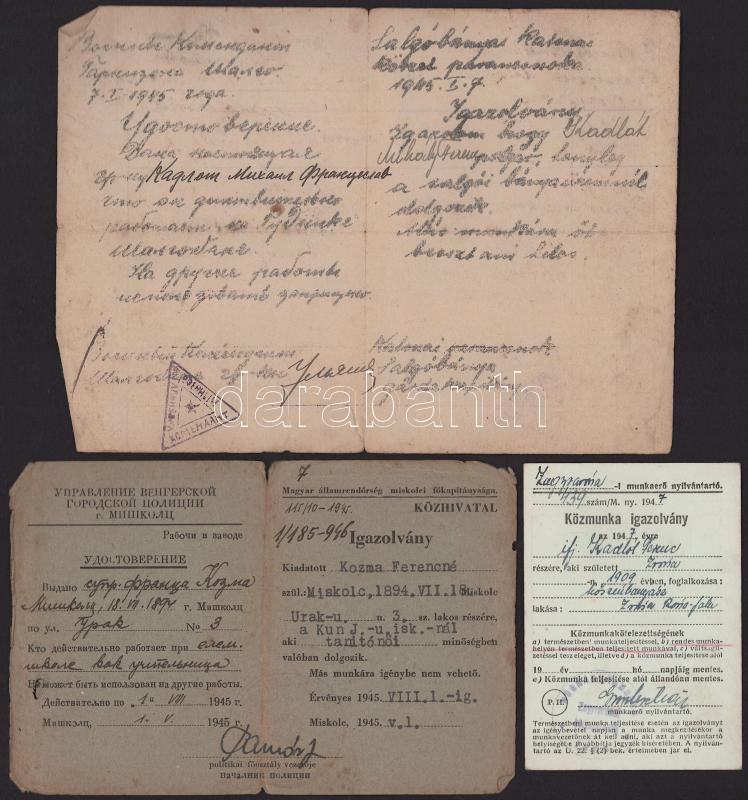 Военный Комендант
Гарнизона Шалго.
7.I 1945 года.
Удостоверение.
Дана настоящая
гр-ну Кадлот Михаил Францислов
что он действительно
работает на Руднике
Шалгобане.
На другие работы
использовать запрещено.
Военный Комендант
ВОЕННЫЙ
КОМЕНДАНТ
Salgóbányai Katonai
körzet parancsnoka
1945. I. 7.
Igazolvány
Igazolom hogy Kadlót
Mihály Ferenc polgár, tényleg
a salgó bányaüzemnél
dolgozik.
Más munkára őt
beosztani tilos.
Katonai parancsnok
Salgóbánya
darabanth
УПРАВЛЕНИЕ ВЕНГЕРСКОЙ
ГОРОДСКОЙ ПОЛИЦИИ
г. МИШКОЛЦ
Рабочи в заводе
УДОСТОВЕРЕНИЕ
Выдано супр. Франца Козма
Мишколц, 18. VII. 1894 г. Мишколц
по ул. Урак № 3
Кто действительно работает при элем.
школе как учительница
Не может быть использован на другие работы.
Действительно по 1ᵒ VIII 1945 г.
Мишколц, 1. V. 1945 г.
politikai főosztály vezetője
НАЧАЛНИК ПОЛИЦИИ
7
Magyar államrendőrség miskolci főkapitánysága.
115/10-1945. KÖZHIVATAL
1/185-946
Igazolvány
Kiadatott Kozma Ferencné
szül.: Miskolc, 1894.VII.18. Miskolc
Urak-u. u. 3. sz. lakos részére,
aki a Kun J.-u.isk.-nál
tanítónői minőségben
valóban dolgozik.
Más munkára igénybe nem vehető.
Érvényes 1945. VIII.1.-ig.
Miskolc, 1945. V.1.
Zagyvaróna -i munkaerő nyilvántartó.
434 szám/M. ny. 1947
Közmunka igazolvány
az 1947 évre
ifj. Kadlót Ferenc
részére, aki született Zróna
-n 1909 évben, foglalkozása:
kőszénbányász
lakása:
Közmunkakötelezettségének
a) természetben munkateljesítés, b) rendes munka-
helyén természetben teljesített munkával, c) váltságfi-
zetéssel tesz eleget, illetve d) a közmunka teljesítése alól
19 év hó napjáig mentes.
e) Közmunka teljesítése alól állandóan mentes.
P. H.
munkaerő nyilvántartó.
Természetben munka teljesítése esetén az igazolványt
az igénybevétel napján a munka megkezdésekor a
munkavezetőnek át kell adni, aki azt a nyilvántartó
helyiségébe továbbítja jegyzék kíséretében. A nyilván-
tartó az Ü. 22. § (2) bek. értelmében jár el.